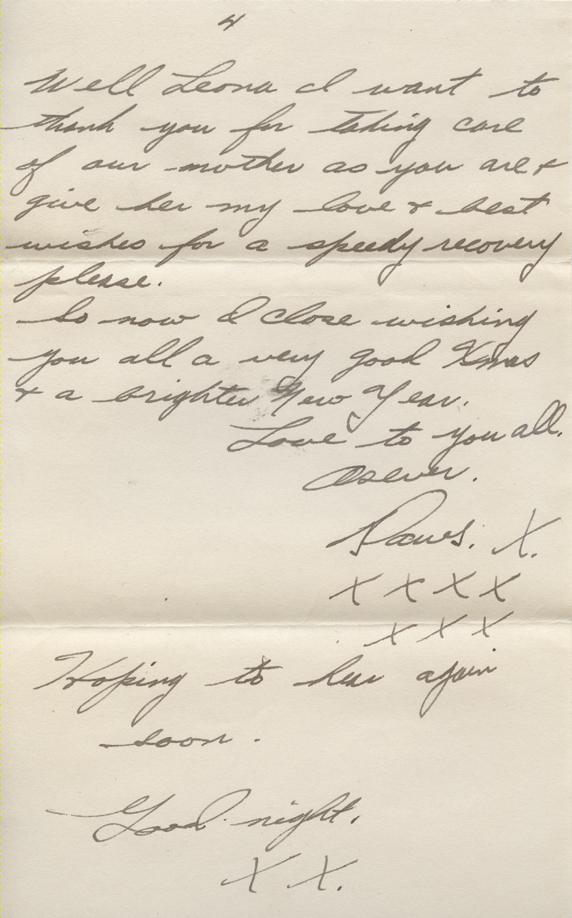 4
Well Leona I want to
thank you for taking care
of our mother as you are &
give her my love & best
wishes for a speedy recovery
please.
So now I close wishing
you all a very good Xmas
& a brighter New Year.
Love to you all.
Asever.
X.
X X X X
X X X
Hoping to hear again
soon.
Good night.
X X.